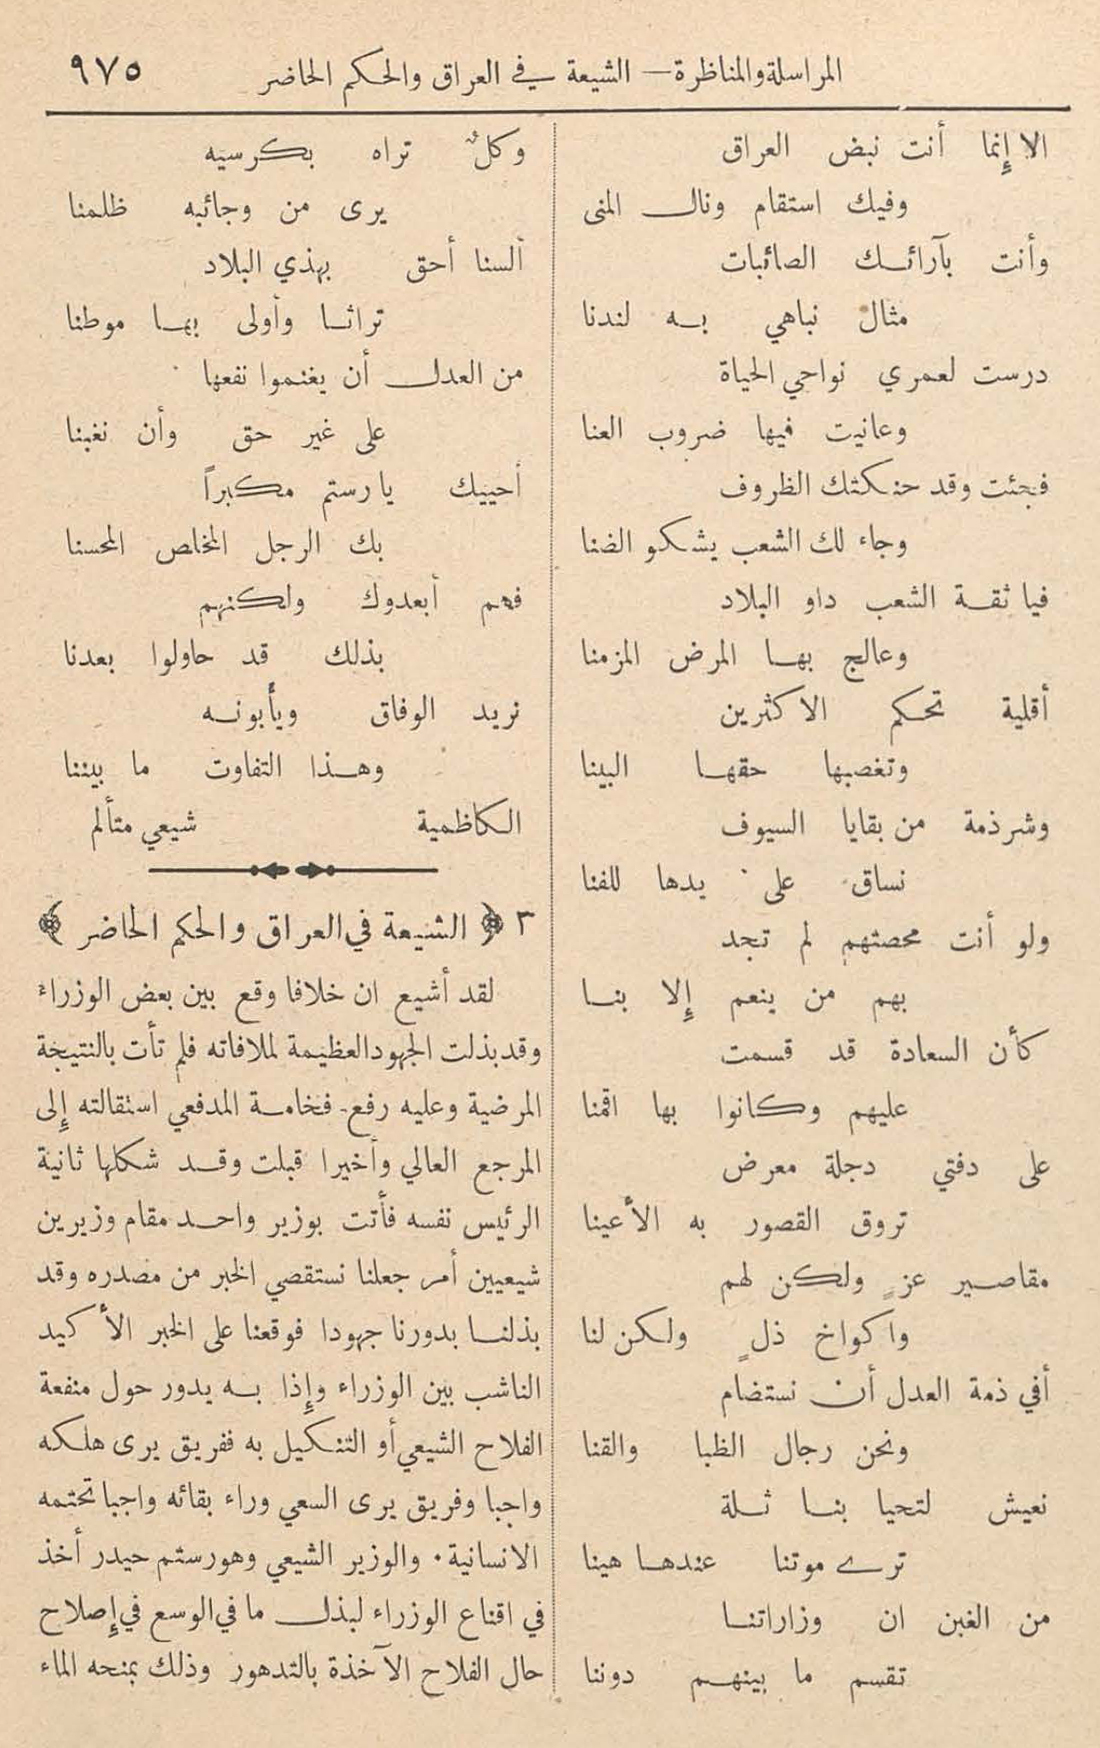 المراسلة والمناظرة — الشيعة في العراق والحكم الحاضر ٩٧٥
الا إنما أنت نبض العراق
وفيك استقام ونال المنى
وأنت بآرائك الصائبات
مثال نباهي به لندنا
درست لعمري نواحي الحياة
وعانيت فيها ضروب العنا
فجئت وقد حنكتك الظروف
وجاء لك الشعب يشكو الضنا
فيا ثقة الشعب داو البلاد
وعالج بها المرض المزمنا
أقلية تحكم الاكثرين
وتغصبها حقها البينا
وشرذمة من بقايا السيوف
نساق على يدها للفنا
ولو أنت محصتهم لم تجد
بهم من ينعم إلا بنا
كأن السعادة قد قسمت
عليهم وكانوا بها اقمنا
على دفتي دجلة معرض
تروق القصور به الأعينا
مقاصير عزٍ ولكن لهم
واكواخ ذلٍ ولكن لنا
أفي ذمة العدل أن نستضام
ونحن رجال الظبا والقنا
نعيش لتحيا بنا ثلة
ترى موتنا عندها هينا
من الغبن ان وزاراتنا
تقسم ما بينهم دوننا
وكلٌ تراه بكرسيه
يرى من وجائبه ظلمنا
ألسنا أحق بهذي البلاد
تراثا وأولى بها موطنا
من العدل أن يغنموا نفعها
على غير حق وأن نغبنا
أحييك يا رستم مكبراً
بك الرجل المخلص المحسنا
فهم أبعدوك ولكنهم
بذلك قد حاولوا بعدنا
نريد الوفاق ويأبونه
وهذا التفاوت ما بيننا
الكاظمية شيعي متألم
٣ ﴿ الشيعة في العراق والحكم الحاضر ﴾
لقد أشيع ان خلافا وقع بين بعض الوزراء
وقد بذلت الجهود العظيمة لملافاته فلم تأت بالنتيجة
المرضية وعليه رفع فخامة المدفعي استقالته إلى
المرجع العالي وأخيرا قبلت وقد شكلها ثانية
الرئيس نفسه فأتت بوزير واحد مقام وزيرين
شيعيين أمر جعلنا نستقصي الخبر من مصدره وقد
بذلنا بدورنا جهودا فوقعنا على الخبر الأكيد
الناشب بين الوزراء وإذا به يدور حول منفعة
الفلاح الشيعي أو التنكيل به ففريق يرى هلكه
واجبا وفريق يرى السعي وراء بقائه واجبا تحتمه
الانسانية. والوزير الشيعي وهو رستم حيدر أخذ
في اقناع الوزراء لبذل ما في الوسع في إصلاح
حال الفلاح الآخذة بالتدهور وذلك بمنحه الماء